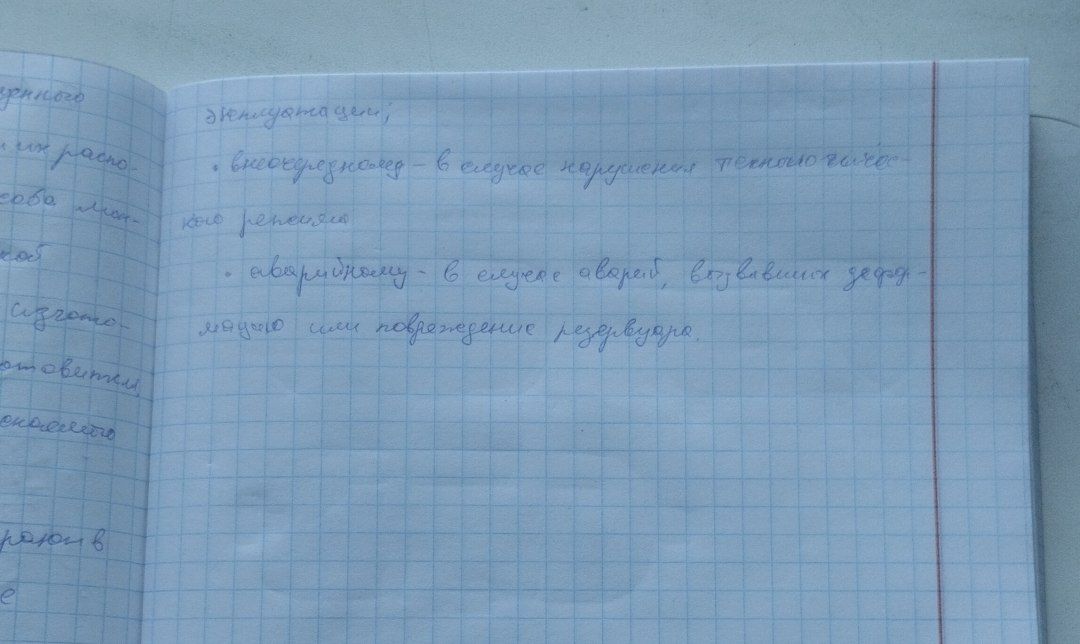 щенного
и их распо-
соба мон-
кой
изгото-
отовителя,
е
эксплуатации;
• внеочередному – в случае нарушения технологичес-
кого режима
• аварийному – в случае аварий, вызвавших дефор-
мацию или повреждение резервуара.